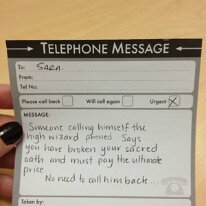 TELEPHONE MESSAGE
To: SARA.
From:
Tel No:
Please call back Will call again Urgent X
MESSAGE:
Someone calling himself the
high wizard phoned. Says
you have broken your sacred
oath and must pay the ultimate
price
No need to call him back...
Taken by: